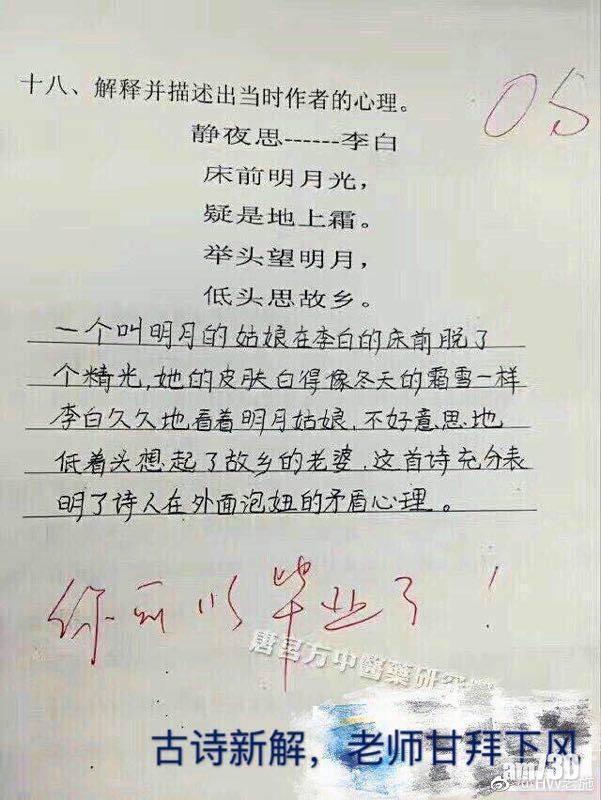 十八、解释并描述出当时作者的心理。
05
静夜思------李白
床前明月光，
疑是地上霜。
举头望明月，
低头思故乡。
一个叫明月的姑娘在李白的床前脱了
个精光，她的皮肤白得像冬天的霜雪一样
李白久久地看着明月姑娘，不好意思地
低着头想起了故乡的老婆，这首诗充分表
明了诗人在外面泡妞的矛盾心理。
你可以毕业了！
唐名方中醫藥研究
古诗新解，老师甘拜下风
am730